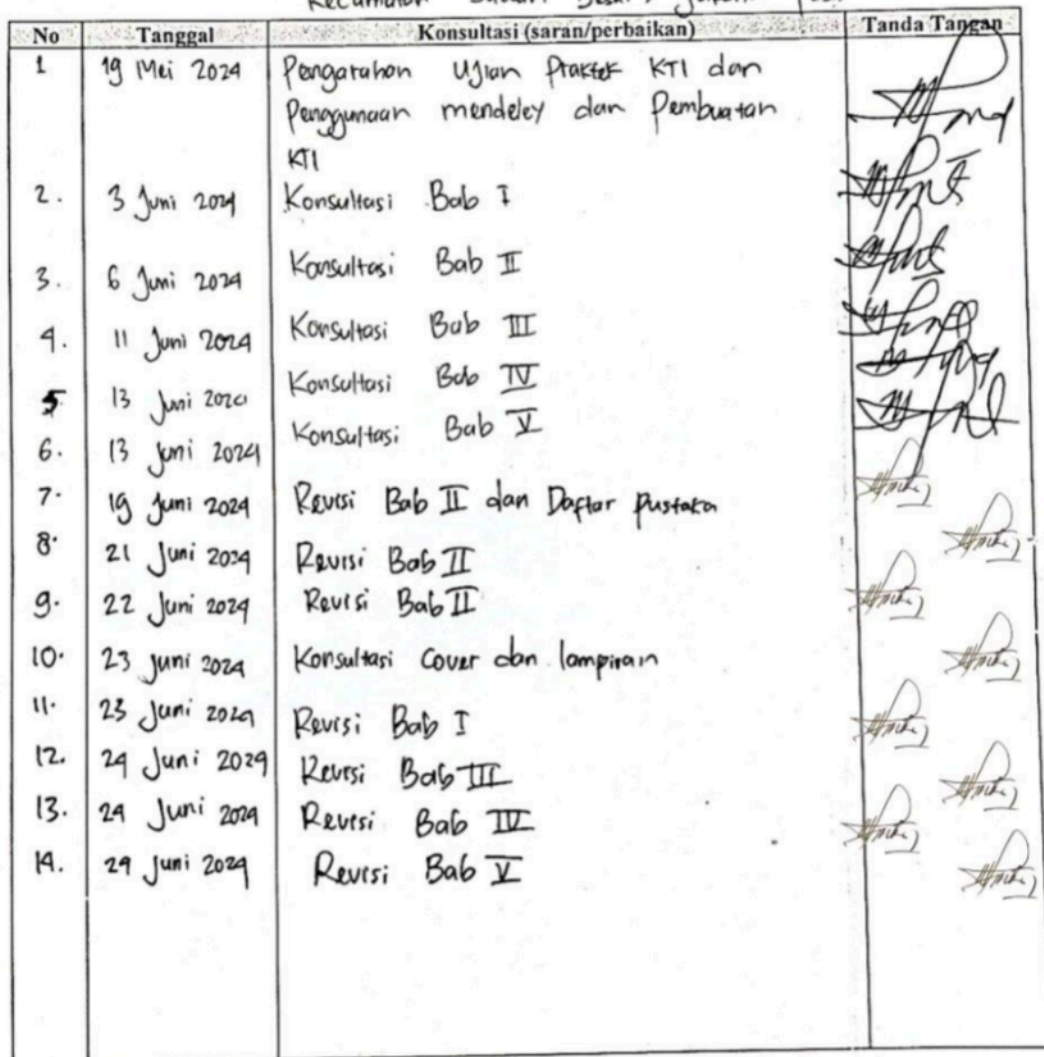 No Tanggal Konsultasi (saran/perbaikan) Tanda Tangan
1 19 Mei 2024 Pengarahan Ujian Praktek KTI dan
Penggunaan mendeley dan Pembuatan
KTI
2. 3 Juni 2024 Konsultasi Bab I
3. 6 Juni 2024 Konsultasi Bab II
4. 11 Juni 2024 Konsultasi Bab III
5 13 Juni 2024 Konsultasi Bab IV
6. 13 Juni 2024 Konsultasi Bab V
7. 19 Juni 2024 Revisi Bab II dan Daftar Pustaka
8. 21 Juni 2024 Revisi Bab II
9. 22 Juni 2024 Revisi Bab II
10. 23 Juni 2024 Konsultasi Cover dan lampiran
11. 23 Juni 2024 Revisi Bab I
12. 24 Juni 2024 Revisi Bab III
13. 24 Juni 2024 Revisi Bab IV
14. 24 Juni 2024 Revisi Bab V